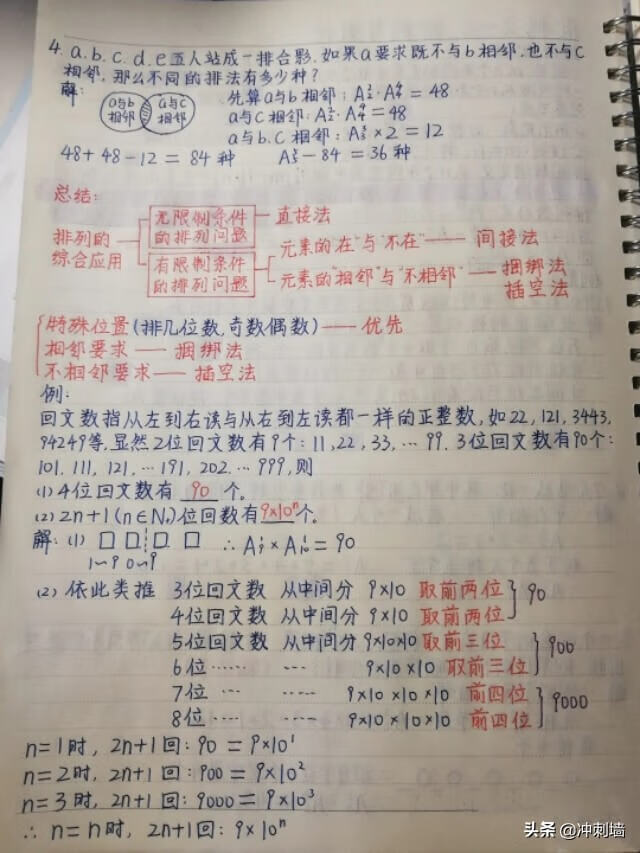 4. a. b. c. d. e五人站成一排合影. 如果a要求既不与b相邻. 也不与c
相邻. 那么不同的排法有多少种?
解: a与b相邻 a与c相邻 先算a与b相邻: A₂²·A₄⁴ = 48
a与c相邻: A₂²·A₄⁴ = 48
a与b.c相邻: A₃³×2 = 12
48+48-12 = 84种 A₅⁵-84 = 36种
总结:
排列的综合应用
无限制条件的排列问题 — 直接法
有限制条件的排列问题
元素的"在"与"不在" — 间接法
元素的"相邻"与"不相邻" — 捆绑法
插空法
特殊位置(排几位数.奇数偶数) — 优先
相邻要求 — 捆绑法
不相邻要求 — 插空法
例:
回文数指从左到右读与从右到左读都一样的正整数, 如22, 121, 3443,
94249等, 显然2位回文数有9个: 11, 22, 33, … 99. 3位回文数有90个:
101. 111, 121, … 191, 202. … 999, 则
(1) 4位回文数有 90 个.
(2) 2n+1(n∈N₊)位回数有 9×10ⁿ 个.
解: (1) □ □ □ □ ∴ A₉¹ × A₁₀¹ = 90
1~9 0~9
(2) 依此类推 3位回文数 从中间分 9×10 取前两位 90
4位回文数 从中间分 9×10 取前两位
5位回文数 从中间分 9×10×10 取前三位 900
6位…… … 9×10×10 取前三位
7位… …… 9×10×10×10 前四位 9000
8位…. …. 9×10×10×10 前四位
n=1时, 2n+1回: 90 = 9×10¹
n=2时, 2n+1回: 900 = 9×10²
n=3时, 2n+1回: 9000 = 9×10³
∴ n=n时, 2n+1回: 9×10ⁿ
头条 @冲刺墙